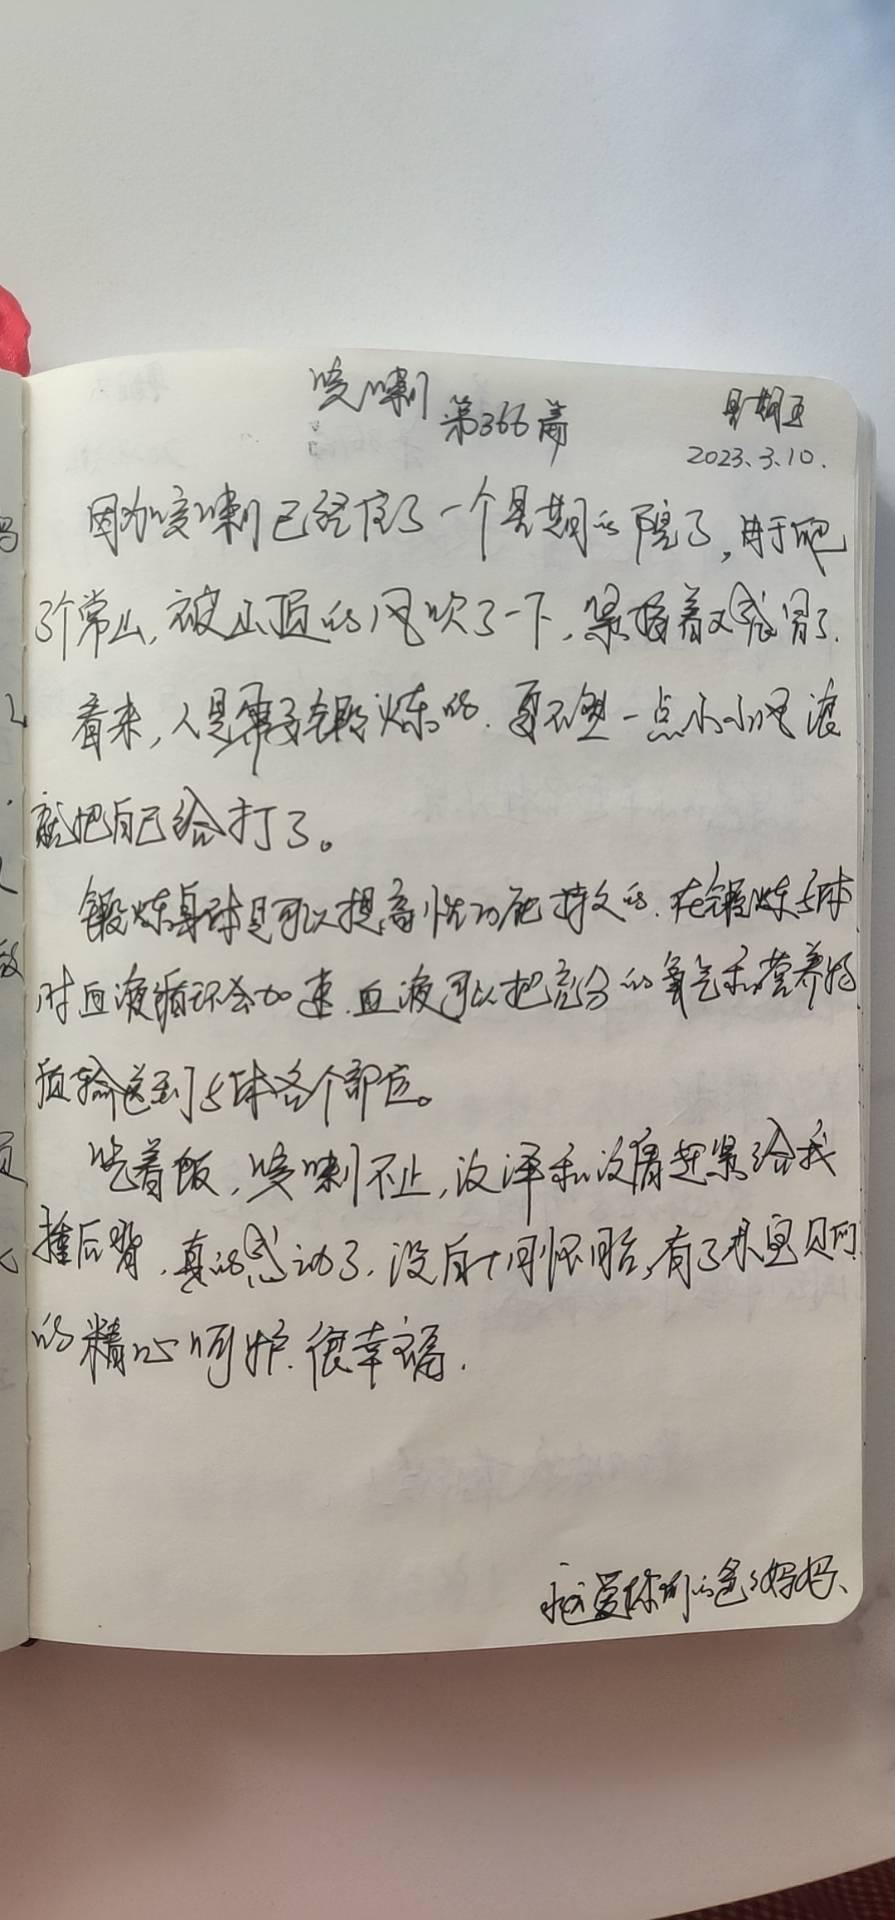 咳嗽
第366篇
星期五
2023.3.10.
因为咳嗽已经住了一个星期的院了,由于爬
了个常山,被山顶的风吹了一下,紧接着又感冒了.
看来,人是需要锻炼的.要不然一点小小风浪
就把自己给打了。
锻炼身体是可以提高性功能持久的.在锻炼身体
时血液循环会加速.血液可以把充分的氧气和营养物
质输送到身体各个部位。
吃着饭,咳嗽不止,汝泽和汝清赶紧给我
捶后背,真的感动了.没有十月怀胎,有了宝贝们
的精心呵护.很幸福.
永远爱你们的爸爸妈妈、